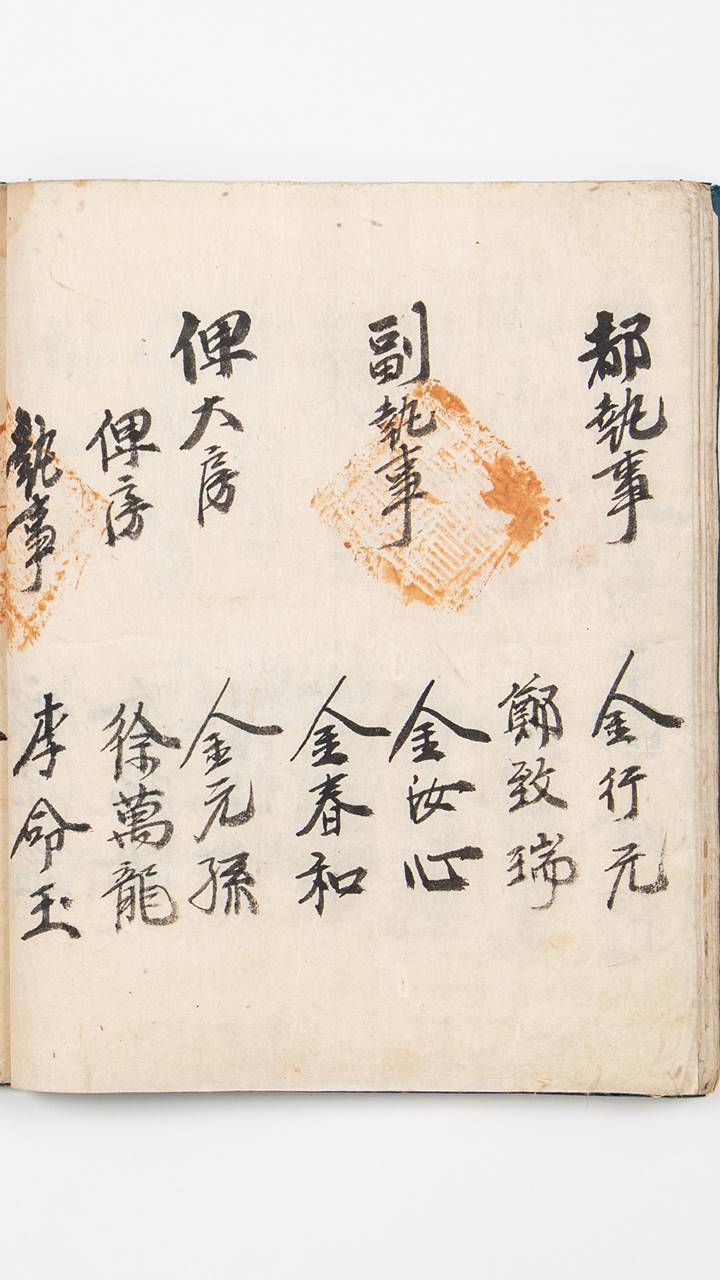 都執事
金行元
鄭致瑞
副執事
金汝心
金春和
俾大房
金元孫
俾房
徐萬龍
執事
李命玉